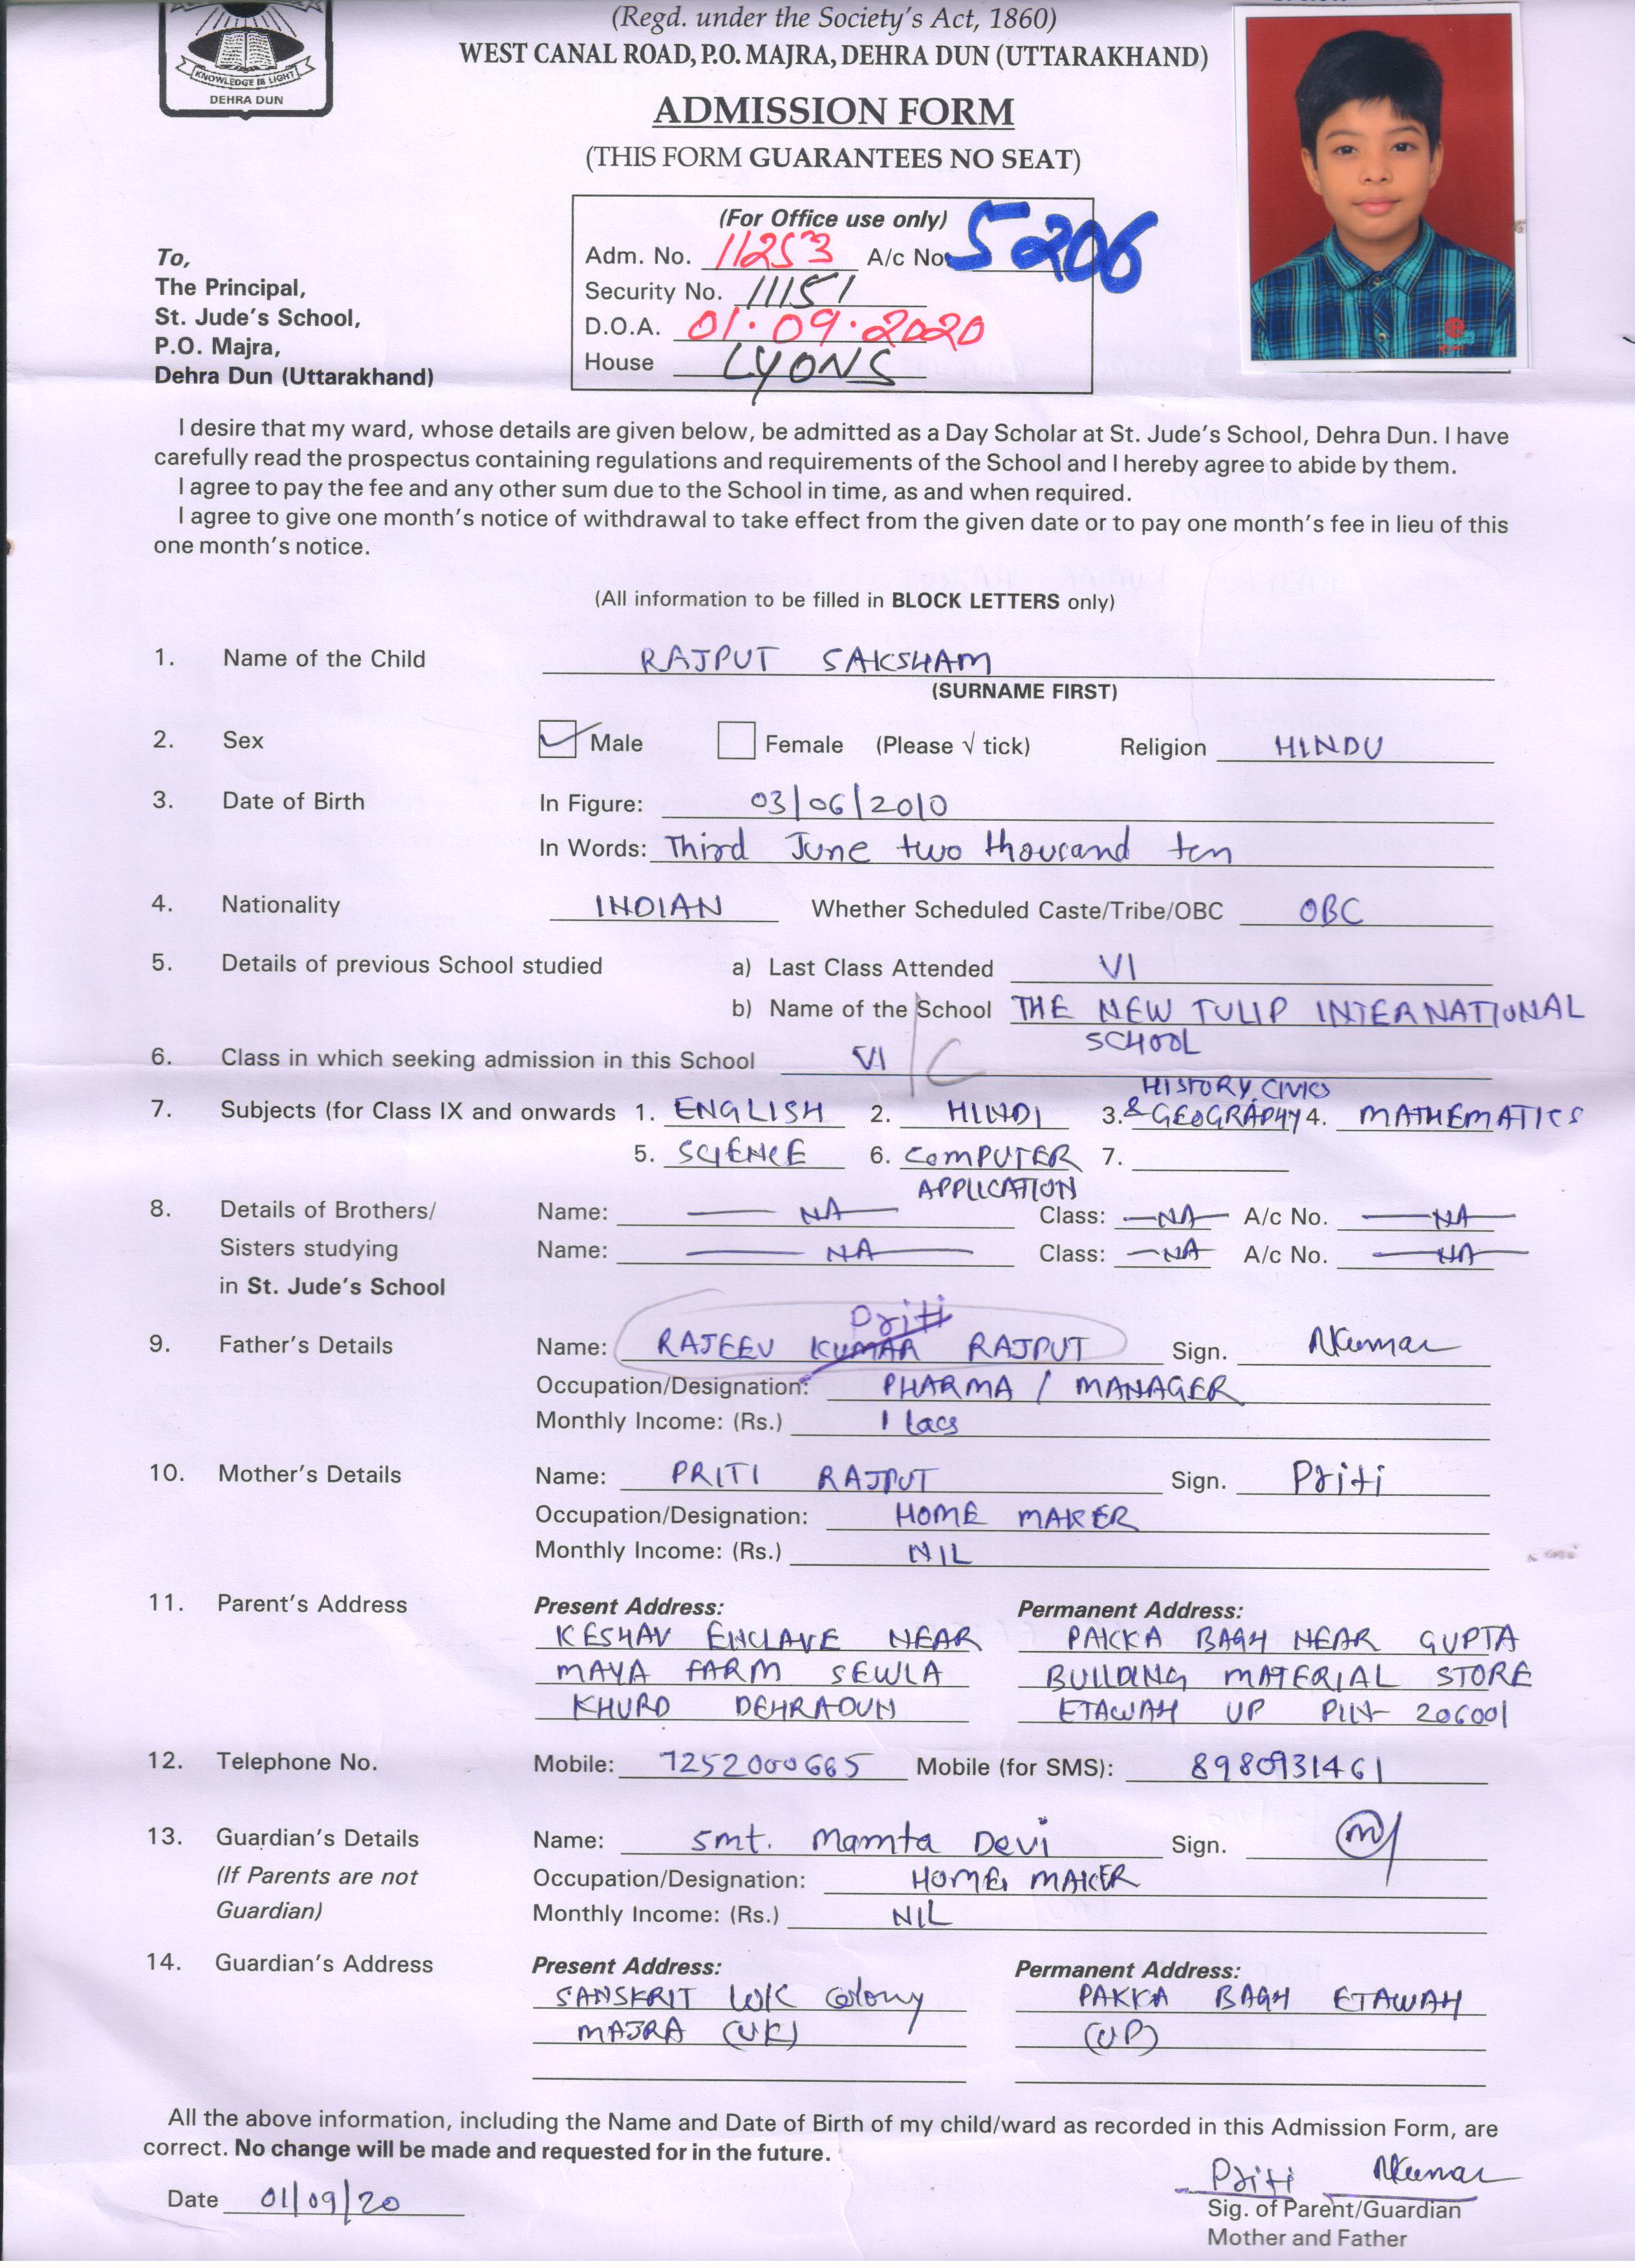 KNOWLEDGE IS LIGHT
DEHRA DUN
(Regd. under the Society's Act, 1860)
WEST CANAL ROAD, P.O. MAJRA, DEHRA DUN (UTTARAKHAND)
ADMISSION FORM
(THIS FORM GUARANTEES NO SEAT)
(For Office use only)
Adm. No. 11253 A/c No 5206
Security No. 11151
D.O.A. 01.09.2020
House LYONS
To,
The Principal,
St. Jude's School,
P.O. Majra,
Dehra Dun (Uttarakhand)
I desire that my ward, whose details are given below, be admitted as a Day Scholar at St. Jude's School, Dehra Dun. I have
carefully read the prospectus containing regulations and requirements of the School and I hereby agree to abide by them.
I agree to pay the fee and any other sum due to the School in time, as and when required.
I agree to give one month's notice of withdrawal to take effect from the given date or to pay one month's fee in lieu of this
one month's notice.
(All information to be filled in BLOCK LETTERS only)
1. Name of the Child RAJPUT SAKSHAM
(SURNAME FIRST)
2. Sex Male Female (Please √ tick) Religion HINDU
3. Date of Birth In Figure: 03/06/2010
In Words: Third June two thousand ten
4. Nationality INDIAN Whether Scheduled Caste/Tribe/OBC OBC
5. Details of previous School studied a) Last Class Attended VI
b) Name of the School THE NEW TULIP INTERNATIONAL
SCHOOL
6. Class in which seeking admission in this School VI/C
HISTORY, CIVICS
7. Subjects (for Class IX and onwards 1. ENGLISH 2. HINDI 3. & GEOGRAPHY 4. MATHEMATICS
5. SCIENCE 6. COMPUTER 7.
APPLICATION
8. Details of Brothers/ Name: NA Class: NA A/c No. NA
Sisters studying Name: NA Class: NA A/c No. NA
in St. Jude's School
Priti
9. Father's Details Name: RAJEEV KUMAR RAJPUT Sign. RKumar
Occupation/Designation: PHARMA / MANAGER
Monthly Income: (Rs.) 1 lacs
10. Mother's Details Name: PRITI RAJPUT Sign. Priti
Occupation/Designation: HOME MAKER
Monthly Income: (Rs.) NIL
11. Parent's Address Present Address: Permanent Address:
KESHAV ENCLAVE NEAR PAKKA BAGH NEAR GUPTA
MAYA FARM SEWLA BUILDING MATERIAL STORE
KHURD DEHRADUN ETAWAH UP PIN- 206001
12. Telephone No. Mobile: 7252000665 Mobile (for SMS): 8980931461
13. Guardian's Details Name: Smt. Mamta Devi Sign.
(If Parents are not Occupation/Designation: HOME MAKER
Guardian) Monthly Income: (Rs.) NIL
14. Guardian's Address Present Address: Permanent Address:
SANSKRIT colony PAKKA BAGH ETAWAH
MAJRA (UK) (UP)
All the above information, including the Name and Date of Birth of my child/ward as recorded in this Admission Form, are
correct. No change will be made and requested for in the future.
Priti RKumar
Date 01/09/20
Sig. of Parent/Guardian
Mother and Father